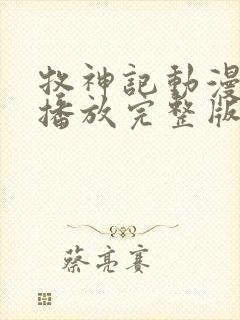 牧神記動漫
播放完整版
蔡亮賽